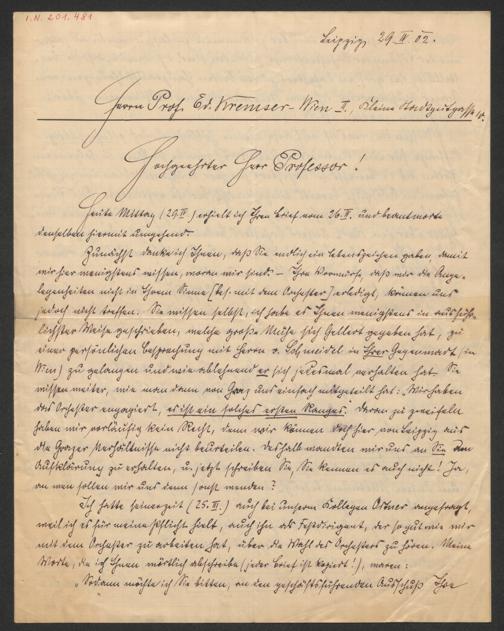 I.N. 201.481
Leipzig, 29 IV 02.
Herrn Prof. Ed. Kremser - Wien II., Kleine Stadtgutgasse 10.
Hochgeehrter Herr Professor!
Heute Mittag (29. IV) erhielt ich Ihren Brief vom 26. IV und beantworte
denselben hiermit umgehend.
Zunächst danke ich Ihnen, daß Sie endlich ein Lebenszeichen gaben, damit
wir hier wenigstens wissen, woran wir sind. - Ihre Vorwürfe, daß wir die Ange-
legenheiten nicht in Ihrem Sinne [betr. mit dem Orchester] erledigt, können uns
jedoch nicht treffen. Sie wissen selbst, ich habe es Ihnen wenigstens in ausführ-
lichster Weise geschrieben, welche große Mühe sich Gellert gegeben hat, zu
einer persönlichen Besprechung mit Herrn v. Schmeidel in Ihrer Gegenwart (in
Wien) zu gelangen und wie ablehnend er sich jedesmal verhalten hat. Sie
wissen weiter, wie man dann von Graz uns einfach mitgeteilt hat: „Wir haben
das Orchester engagiert, es ist ein solches ersten Ranges". Daran zu zweifeln
haben wir vorläufig kein Recht, denn wir können doch hier, von Leipzig aus
die Grazer Verhältnisse nicht beurteilen. Deshalb wandten wir uns an Sie um
Aufklärung zu erhalten, u. jetzt schreiben Sie, Sie kennen es auch nicht! Ja,
an wen sollen wir uns denn sonst wenden?
Ich hatte seinerzeit (25. III.) auch bei unserm Kollegen Ortner angefragt,
weil ich es für meine Pflicht hielt, auch ihn als Festdirigent, der so gut wie wir
mit dem Orchester zu arbeiten hat, über die Wahl des Orchesters zu hören. Meine
Worte, die ich Ihnen wörtlich abschreibe (jeder Brief ist kopiert!), waren:
„Sodann möchte ich Sie bitten, an den geschäftsführenden Ausschuß Ihre